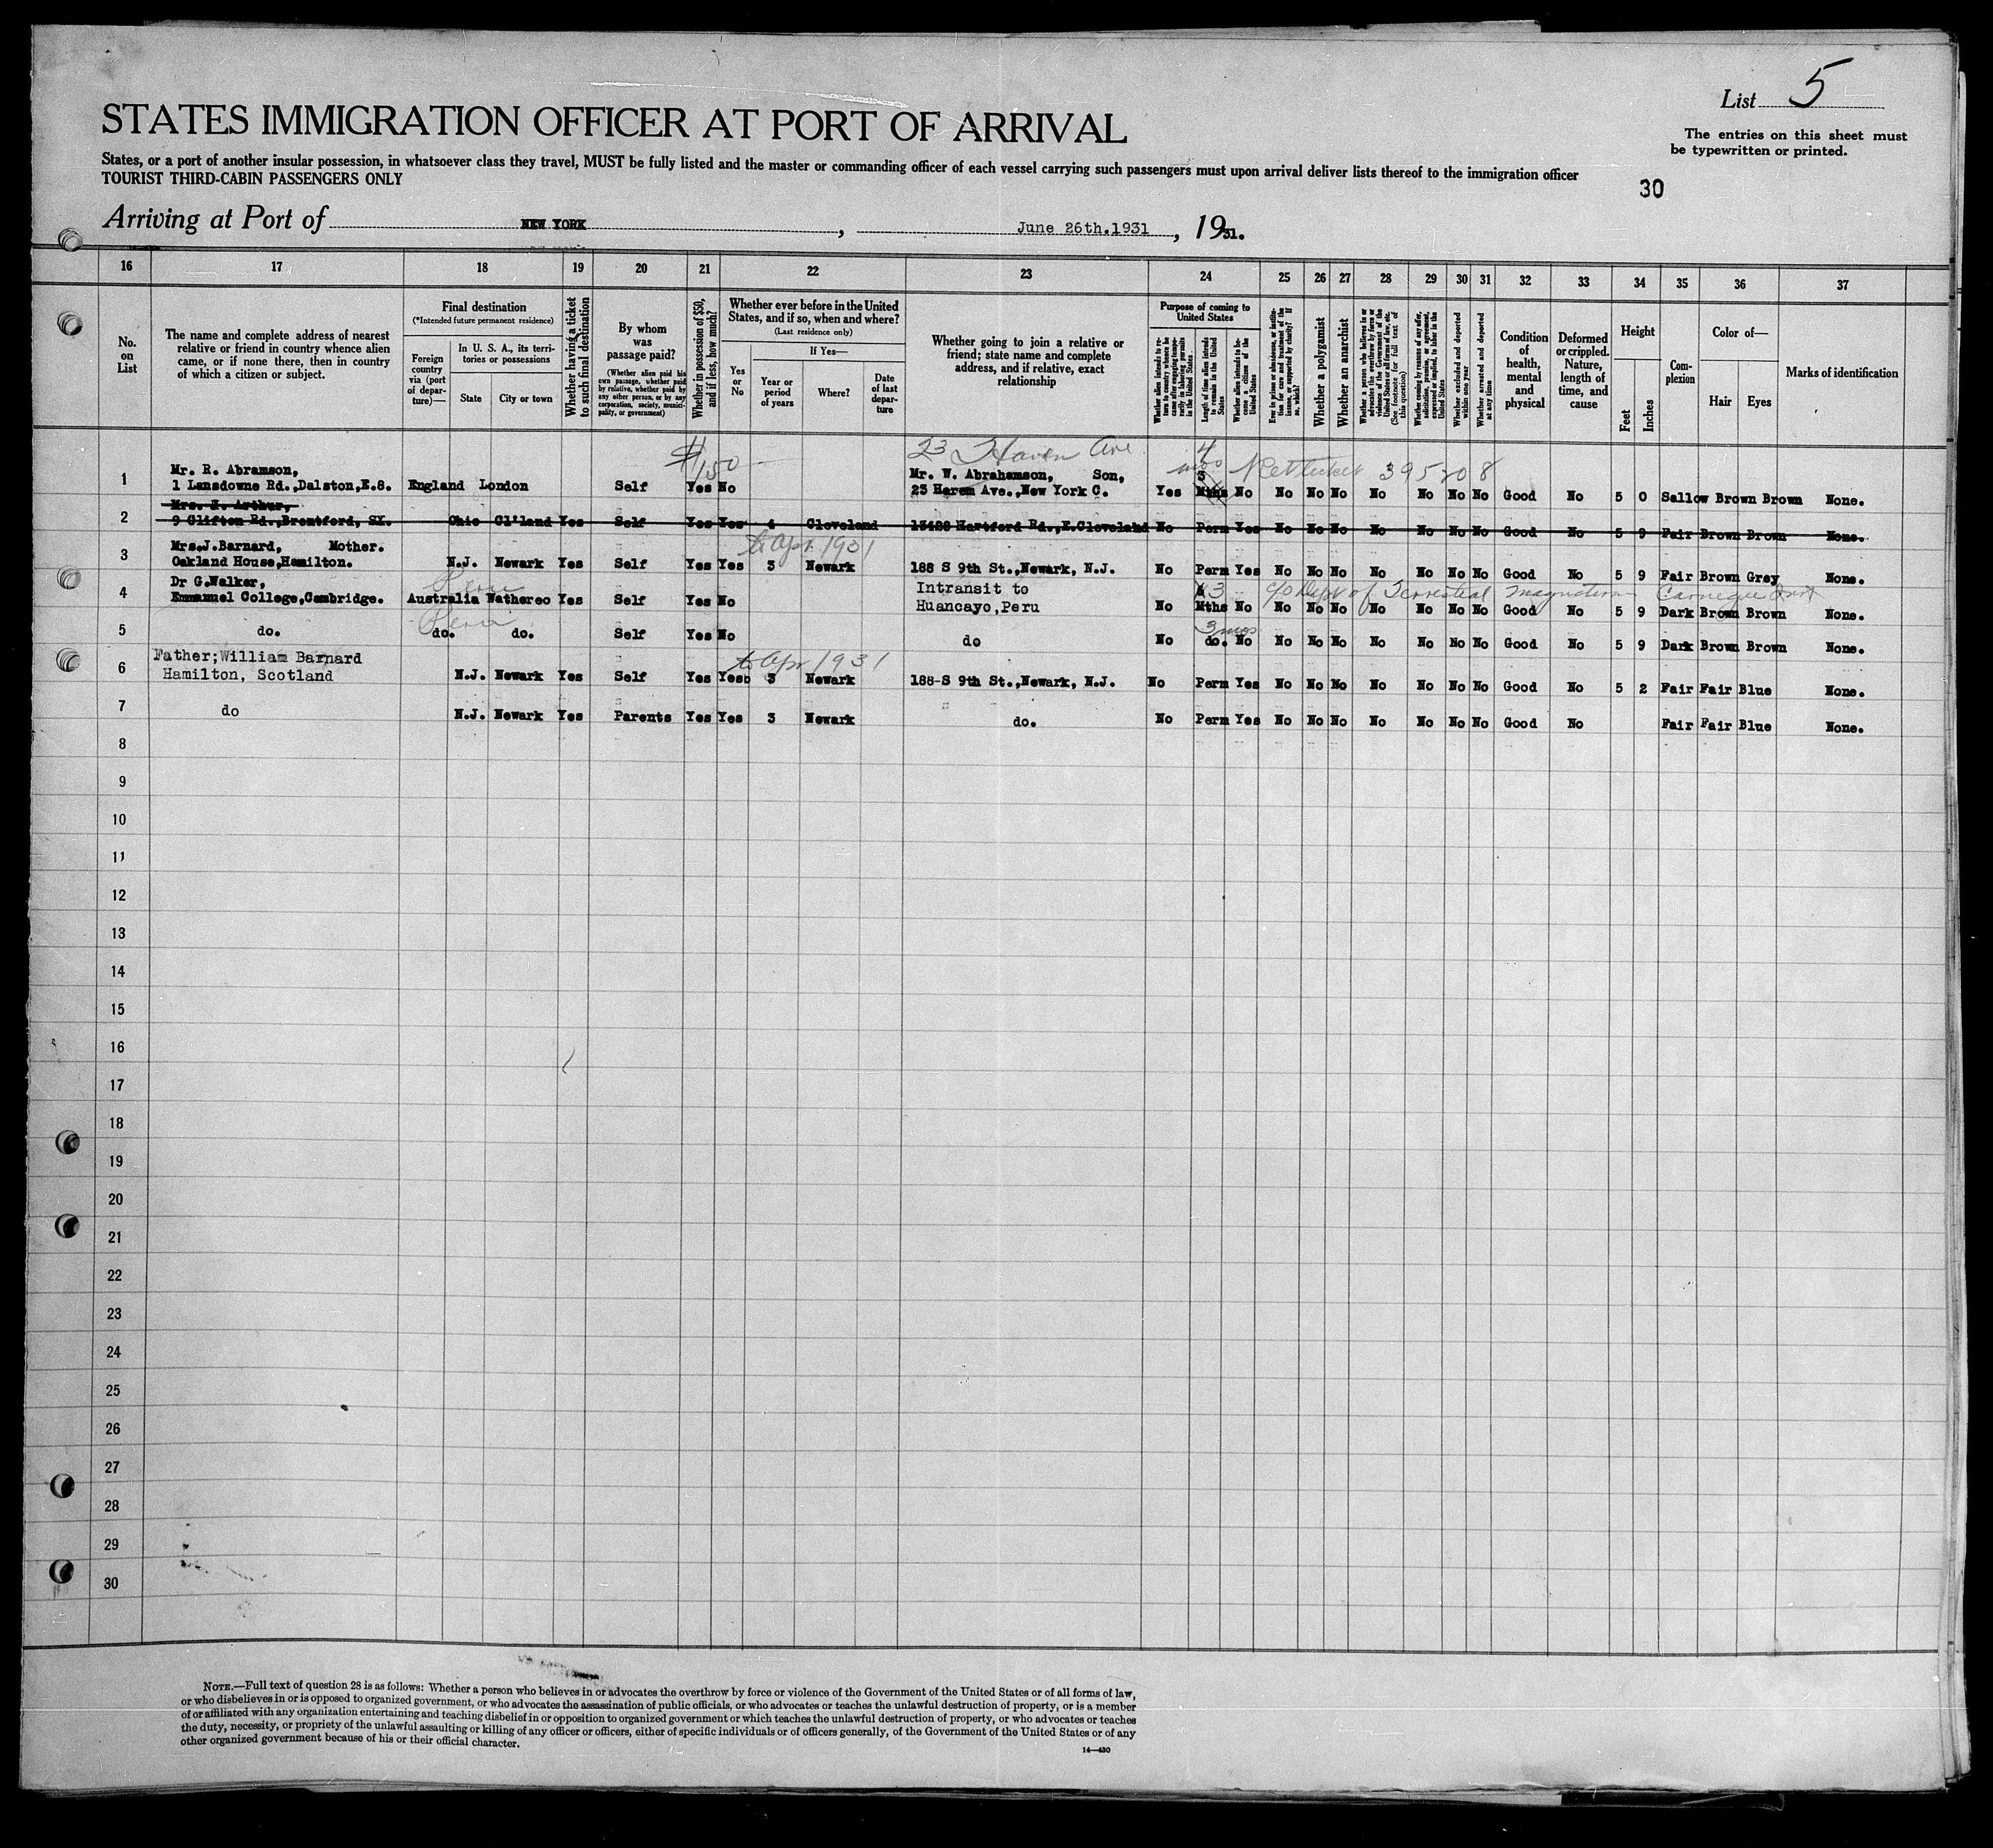 List 5
STATES IMMIGRATION OFFICER AT PORT OF ARRIVAL
The entries on this sheet must
be typewritten or printed.
States, or a port of another insular possession, in whatsoever class they travel, MUST be fully listed and the master or commanding officer of each vessel carrying such passengers must upon arrival deliver lists thereof to the immigration officer
TOURIST THIRD-CABIN PASSENGERS ONLY
30
Arriving at Port of NEW YORK , June 26th.1931 , 1931.
16 17 18 19 20 21 22 23 24 25 26 27 28 29 30 31 32 33 34 35 36 37
No.
on
List
The name and complete address of nearest
relative or friend in country whence alien
came, or if none there, then in country
of which a citizen or subject.
Final destination
(*Intended future permanent residence)
Foreign
country
via (port
of depar-
ture)—
In U. S. A., its terri-
tories or possessions
State City or town
Whether having a ticket
to such final destination
By whom
was
passage paid?
(Whether alien paid his
own passage, whether paid
by relative, whether paid by
any other person, or by any
corporation, society, munici-
pality, or government)
Whether in possession of $50,
and if less, how much?
Whether ever before in the United
States, and if so, when and where?
(Last residence only)
Yes
or
No
If Yes—
Year or
period
of years
Where?
Date
of last
depar-
ture
Whether going to join a relative or
friend; state name and complete
address, and if relative, exact
relationship
Purpose of coming to
United States
Length of time alien intends
to remain in the United
States
Whether alien intends to be-
come a citizen of the
United States
Whether a polygamist
Whether an anarchist
Whether excluded and deported
within one year
Whether arrested and deported
at any time
Condition
of
health,
mental
and
physical
Deformed
or crippled.
Nature,
length of
time, and
cause
Height
Feet
Inches
Com-
plexion
Color of—
Hair Eyes
Marks of identification
$150 23 Haven Ave 4
mos 395208
1 Mr. R. Abramson, Mr. W. Abrahamson, Son,
1 Lansdowne Rd.,Dalston,E.8. England London Self Yes No 23 Harem Ave.,New York C. Yes Mths No No No No No No No No Good No 5 0 Sallow Brown Brown None.
2 Mrs. J. Arthur,
9 Clifton Rd.,Brentford, SX. Ohio Cl'land Yes Self Yes Yes 4 Cleveland 13488 Hartford Rd.,E.Cleveland No Perm Yes No No No No No No No Good No 5 9 Fair Brown Brown None.
to Apr. 1931
3 Mrs.J.Barnard, Mother.
Oakland House,Hamilton. N.J. Newark Yes Self Yes Yes 3 Newark 188 S 9th St.,Newark, N.J. No Perm Yes No No No No No No No Good No 5 9 Fair Brown Grey None.
Peru 3 c/o Dept of Terrestrial Magnetism Carnegie Inst
4 Dr G.Walker, Intransit to
Emmanuel College,Cambridge. Australia Watheroo Yes Self Yes No Huancayo,Peru No Mths No No No No No No No No Good No 5 9 Dark Brown Brown None.
Peru 3 mos
5 do. do. do. Self Yes No do No do. No No No No No No No No Good No 5 9 Dark Brown Brown None.
to Apr 1931
6 Father;William Barnard
Hamilton, Scotland N.J. Newark Yes Self Yes Yes 3 Newark 188-S 9th St.,Newark, N.J. No Perm Yes No No No No No No No Good No 5 2 Fair Fair Blue None.
7 do N.J. Newark Yes Parents Yes Yes 3 Newark do. No Perm Yes No No No No No No No Good No Fair Fair Blue None.
8
9
10
11
12
13
14
15
16
17
18
19
20
21
22
23
24
25
26
27
28
29
30
NOTE.—Full text of question 28 is as follows: Whether a person who believes in or advocates the overthrow by force or violence of the Government of the United States or of all forms of law,
or who disbelieves in or is opposed to organized government, or who advocates the assassination of public officials, or who advocates or teaches the unlawful destruction of property, or is a member
of or affiliated with any organization entertaining and teaching disbelief in or opposition to organized government or which teaches the unlawful destruction of property, or who advocates or teaches
the duty, necessity, or propriety of the unlawful assaulting or killing of any officer or officers, either of specific individuals or of officers generally, of the Government of the United States or of any
other organized government because of his or their official character.
14—430